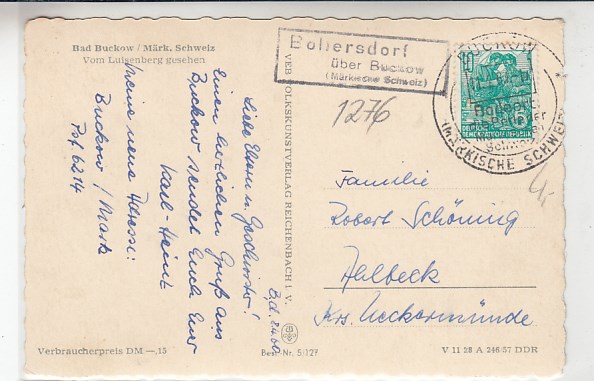 Bad Buckow / Märk. Schweiz
Vom Luisenberg gesehen
Bollersdorf
über Buckow
(Märkische Schweiz)
BUCKOW
(MÄRKISCHE SCHWEIZ)
10
DEUTSCHE
DEMOKRATISCHE REPUBLIK
1276
VEB VOLKSKUNSTVERLAG REICHENBACH i. V.
Liebe Eltern u. Geschwister!
Einen herzlichen Gruß aus
Buckow sendet Euch Euer
Karl-Heinz
Meine neue Adresse:
Buckow / Mark
Pof 6214
Familie
Robert Schöning
Ahlbeck
Krs. Ueckermünde
Verbraucherpreis DM —,15
Best. Nr. 5/127
V 11 28 A 246/57 DDR